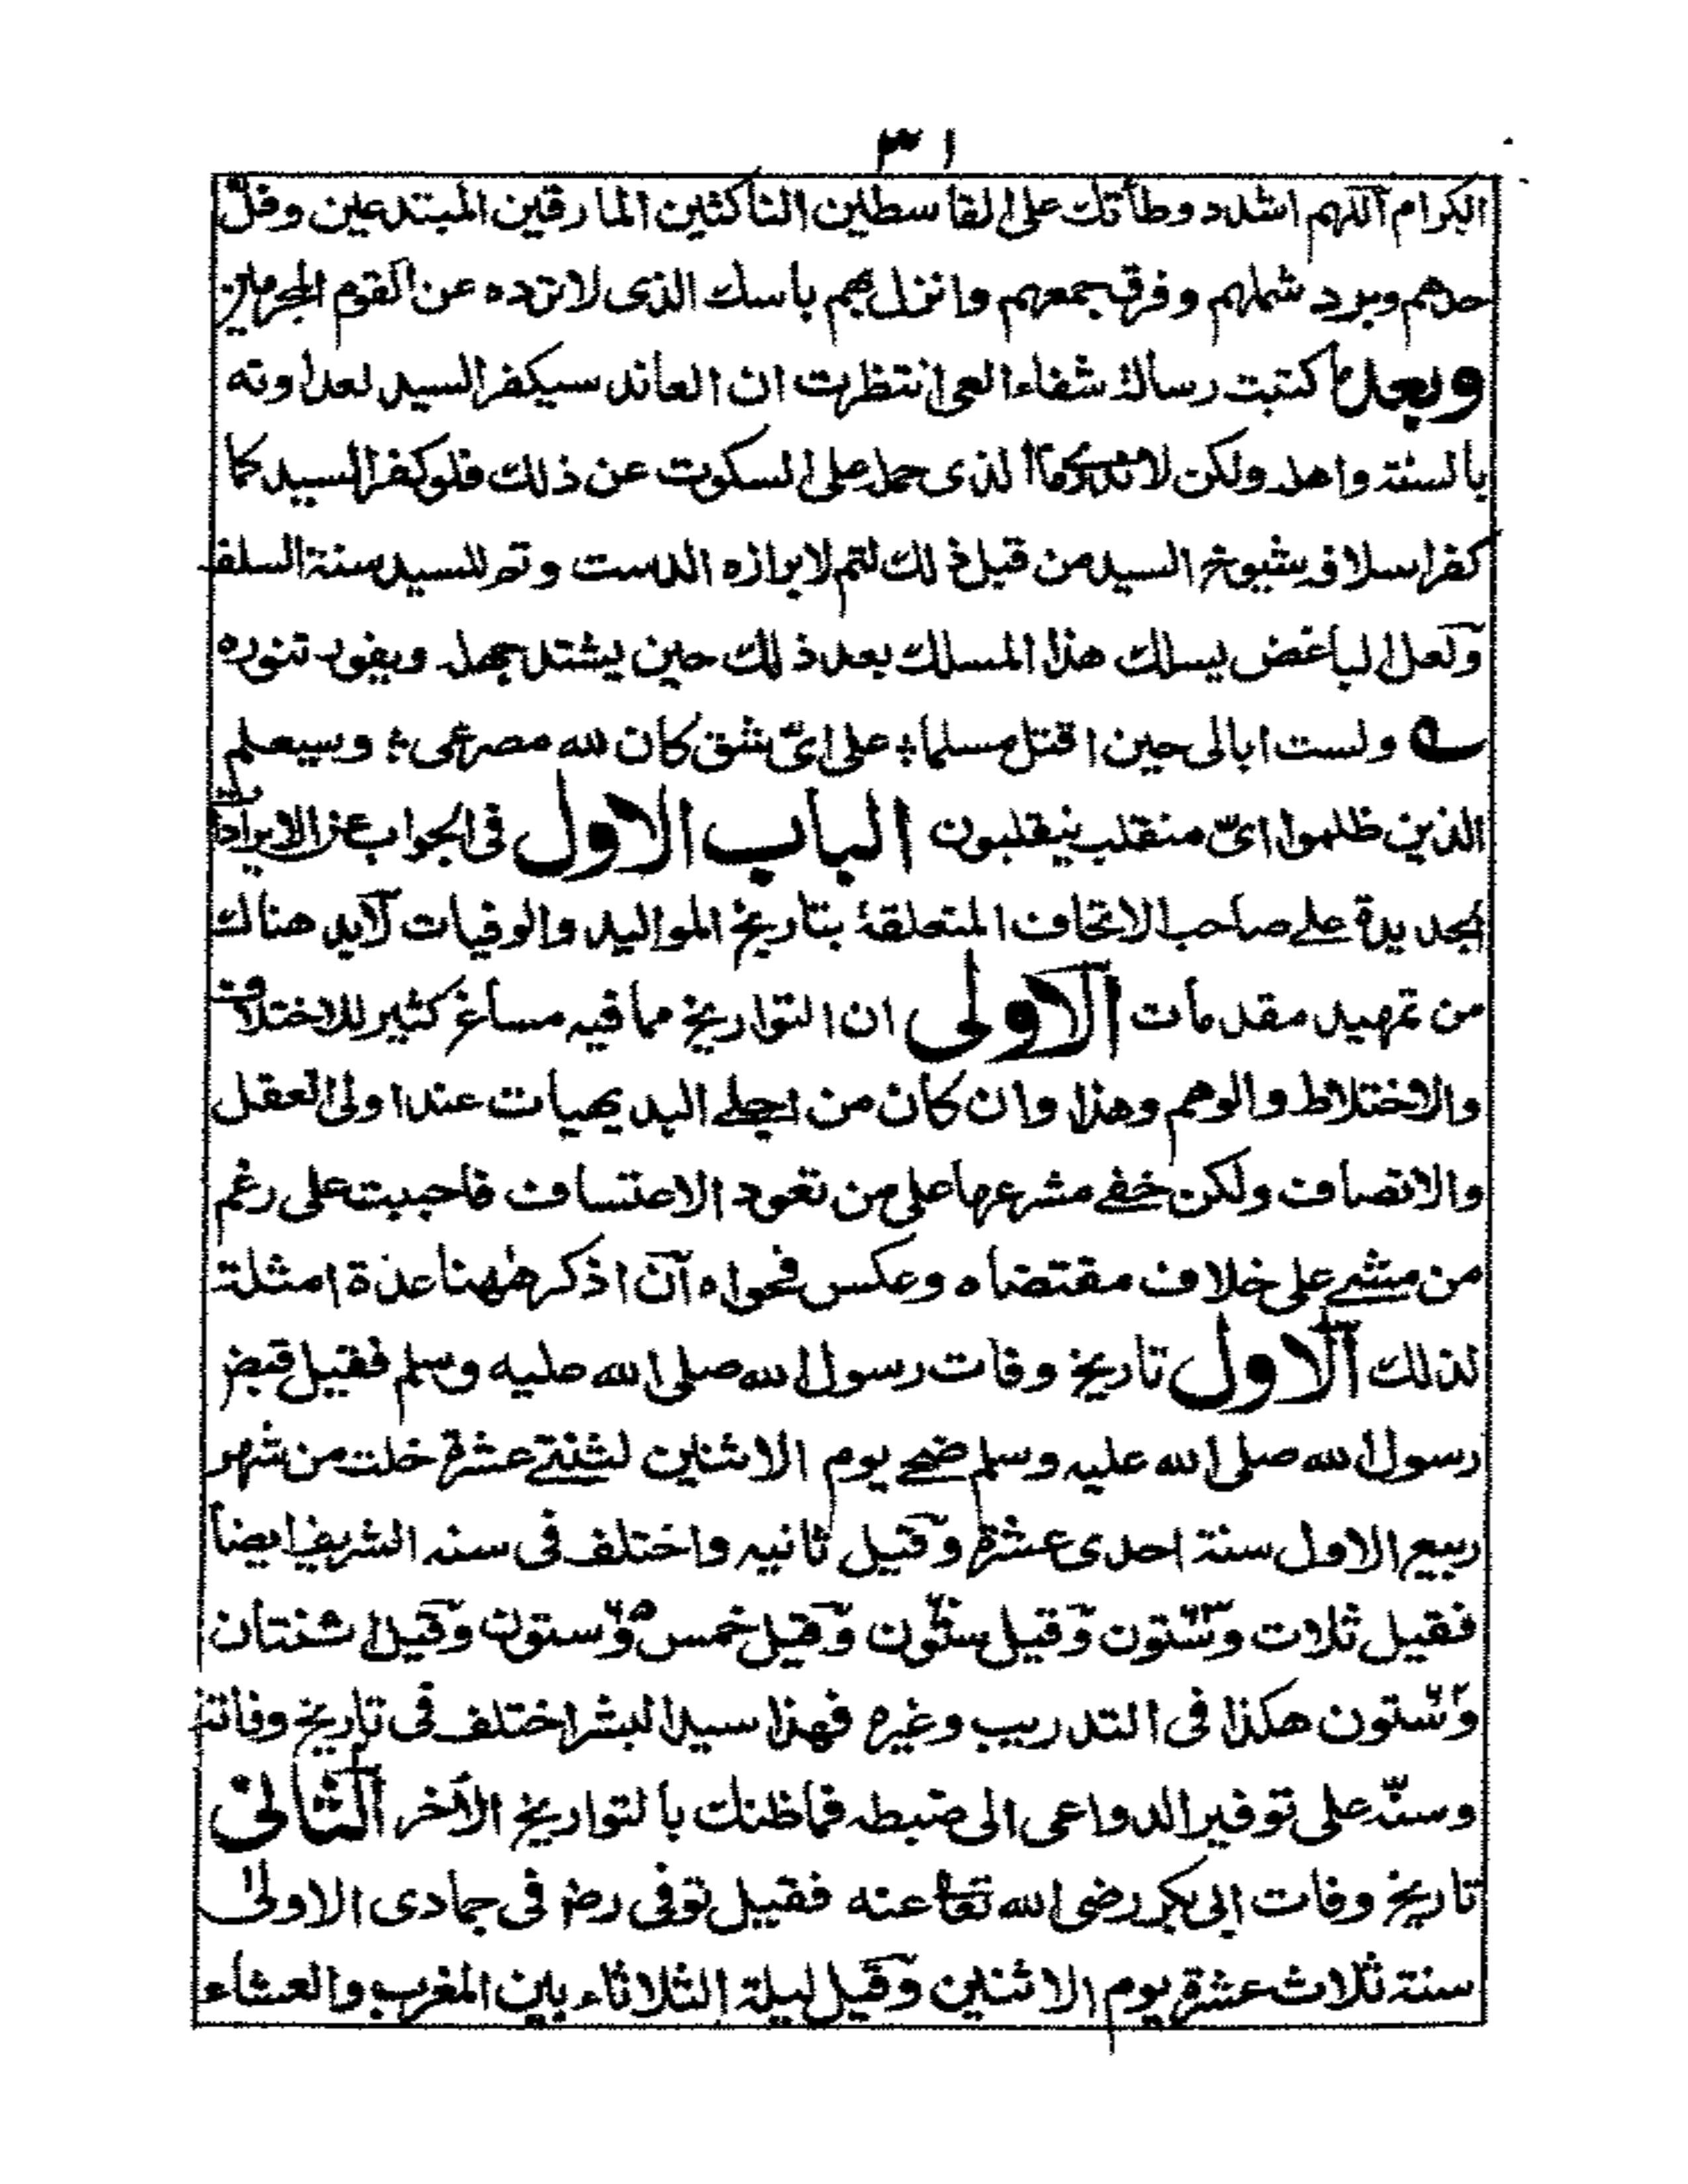 ٣١
الكرام اللهم اشدد وطأتك على القاسطين الناكثين المارقين المبتدعين وفلّ
حدهم وبرد شملهم وفرق جمعهم وانزل بهم باسك الذى لا ترده عن القوم المجرمين
وبعد ما كتبت رسالة شفاء العى انتظرت ان العاند سيكفر السيد لعداوته
بالسنة واهله ولكن لا ندرى ما الذى حمله على السكوت عن ذلك فلو كفر السيد كما
كفر اسلافه شيوخ السيد من قبل ذلك لتم لابرازه الدست وتم للسيد سنة السلف
ولعل الباغض يسلك هذا المسلك بعد ذلك حين يشتد جهله ويفور تنوره
ولست ابالى حين اقتل مسلما ؛ على اىّ شق كان لله مصرعى ؛ وسيعلم
الذين ظلموا اىّ منقلب ينقلبون الباب الاول فى الجواب عن الايرادات
الجديدة على صاحب الاتحاف المتعلقة بتاريخ المواليد والوفيات لابد هناك
من تمهيد مقدمات الاولى ان التواريخ مما فيه مساغ كثير للاختلاف
والاختلاط والوهم وهذا وان كان من اجلى البديهيات عند اولى العقل
والانصاف ولكن خفى مشرعها على من تعود الاعتساف فاحببت على رغم
من مشى على خلاف مقتضاه وعكس فحواه ان اذكر ههنا عدة امثلة
لذلك الاول تاريخ وفات رسول الله صلى الله عليه وسلم فقيل قبض
رسول الله صلى الله عليه وسلم ضحى يوم الاثنين لثنتى عشرة خلت من شهر
ربيع الاول سنة احدى عشرة وقيل ثانيه واختلف فى سنه الشريف ايضا
فقيل ثلاث وستون وقيل ستون وقيل خمس وستون وقيل اثنتان
وستون هكذا فى التدريب وغيره فهذا سيد البشر اختلف فى تاريخ وفاته
وسنّه على توفير الدواعى الى ضبطه فما ظنك بالتواريخ الأخر الثانى
تاريخ وفات ابى بكر رضى الله تعا عنه فقيل توفى رض فى جمادى الاولى
سنة ثلاث عشرة يوم الاثنين وقيل ليلة الثلاثاء بين المغرب والعشاء